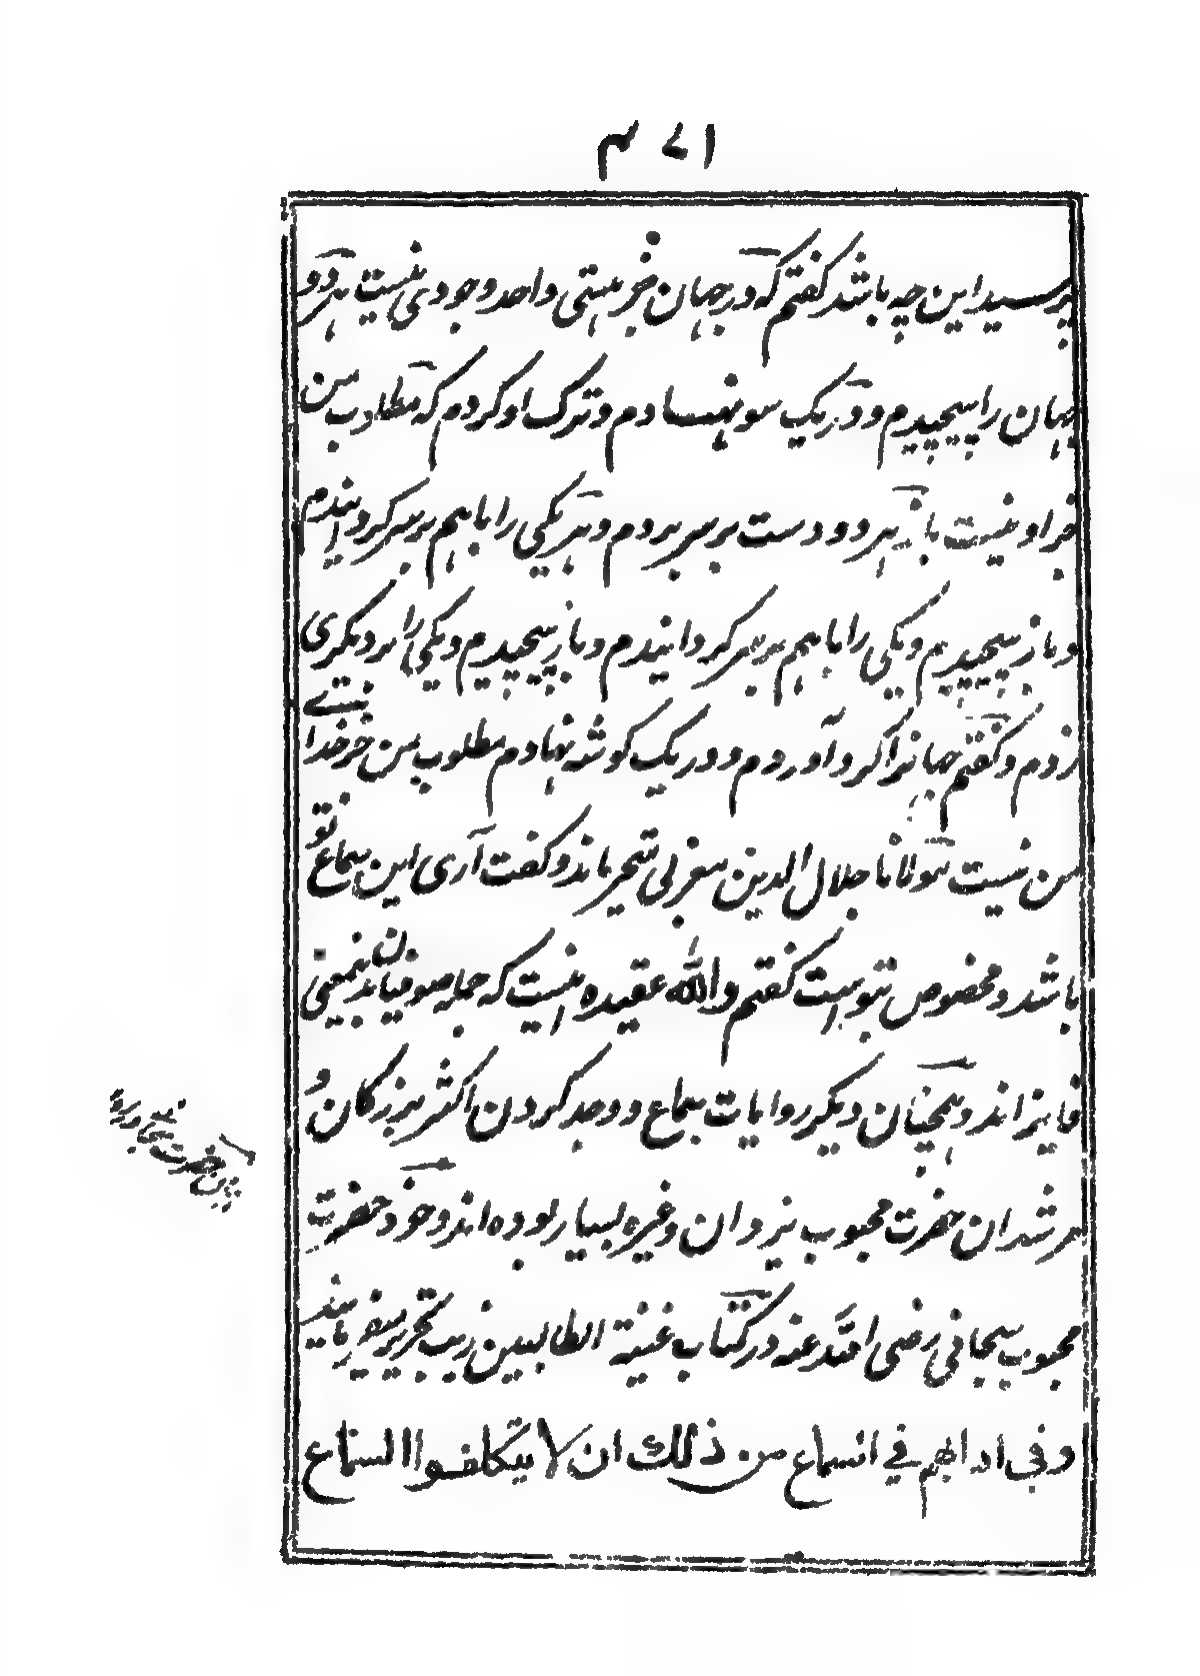 ۱۷۴
پرسید این چه باشد گفتم که در جهان خبر هستی واحد وجودی نیست هر دو
جهان را پیچیدیم و در یک سو نهادم و ترک او کردم که مطلوب من
جز او نیست باز هر دو دست بر سر بردم و هر یکی را با هم بر سر گردانیدم
و باز پیچیدیم و یکی را با هم بر سر گردانیدم و باز پیچیدیم و یکی را بر دیگری
زدم و گفتم جهانرا گرد آوردم و در یک گوشه نهادم مطلوب من جز خدا
من نیست مولانا جلال الدین مغربی متحیر ماند و گفت آری این سماع تو
باشد و مخصوص بتو است گفتم والله عقیده اینست که جمله صوفیان بدینمعنی
فایز اند و همچنان دیگر روایات سماع و وجد کردن اکثر بزرگان و
مرشدان حضرت محبوب یزدان وغیره بسیار بوده اند و خود حضرت
محبوب سبحانی رضی الله عنه در کتاب غنیة الطالبین زیب تحریر میفرمایند
وفی ادابهم في السماع من ذلك ان لا يتكلفوا السماع